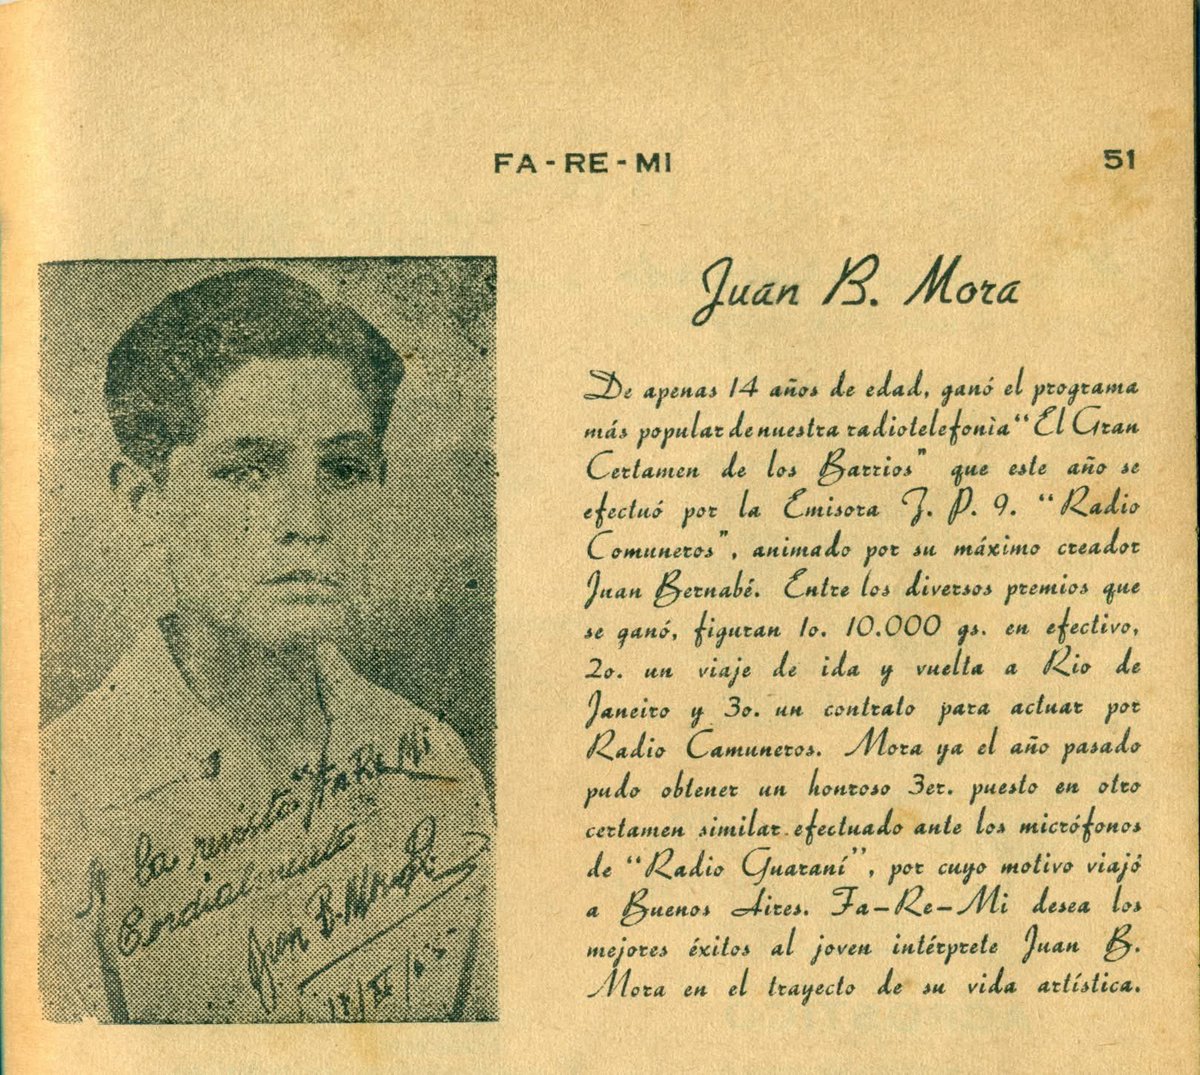 FA - RE - MI 51
Juan B. Mora
De apenas 14 años de edad, ganó el programa
más popular de nuestra radiotelefonìa "El Gran
Certamen de los Barrios" que este año se
efectuó por la Emisora Z. P. 9. "Radio
Comuneros", animado por su máximo creador
Juan Bernabé. Entre los diversos premios que
se ganó, figuran 1o. 10.000 gs. en efectivo,
2o. un viaje de ida y vuelta a Rio de
Janeiro y 3o. un contrato para actuar por
Radio Camuneros. Mora ya el año pasado
pudo obtener un honroso 3er. puesto en otro
certamen similar efectuado ante los micrófonos
de "Radio Guaraní", por cuyo motivo viajó
a Buenos Aires. Fa-Re-Mi desea los
mejores éxitos al joven intérprete Juan B.
Mora en el trayecto de su vida artística.
A la revista "Fa Re Mi
Cordialmente
Juan B. Mora